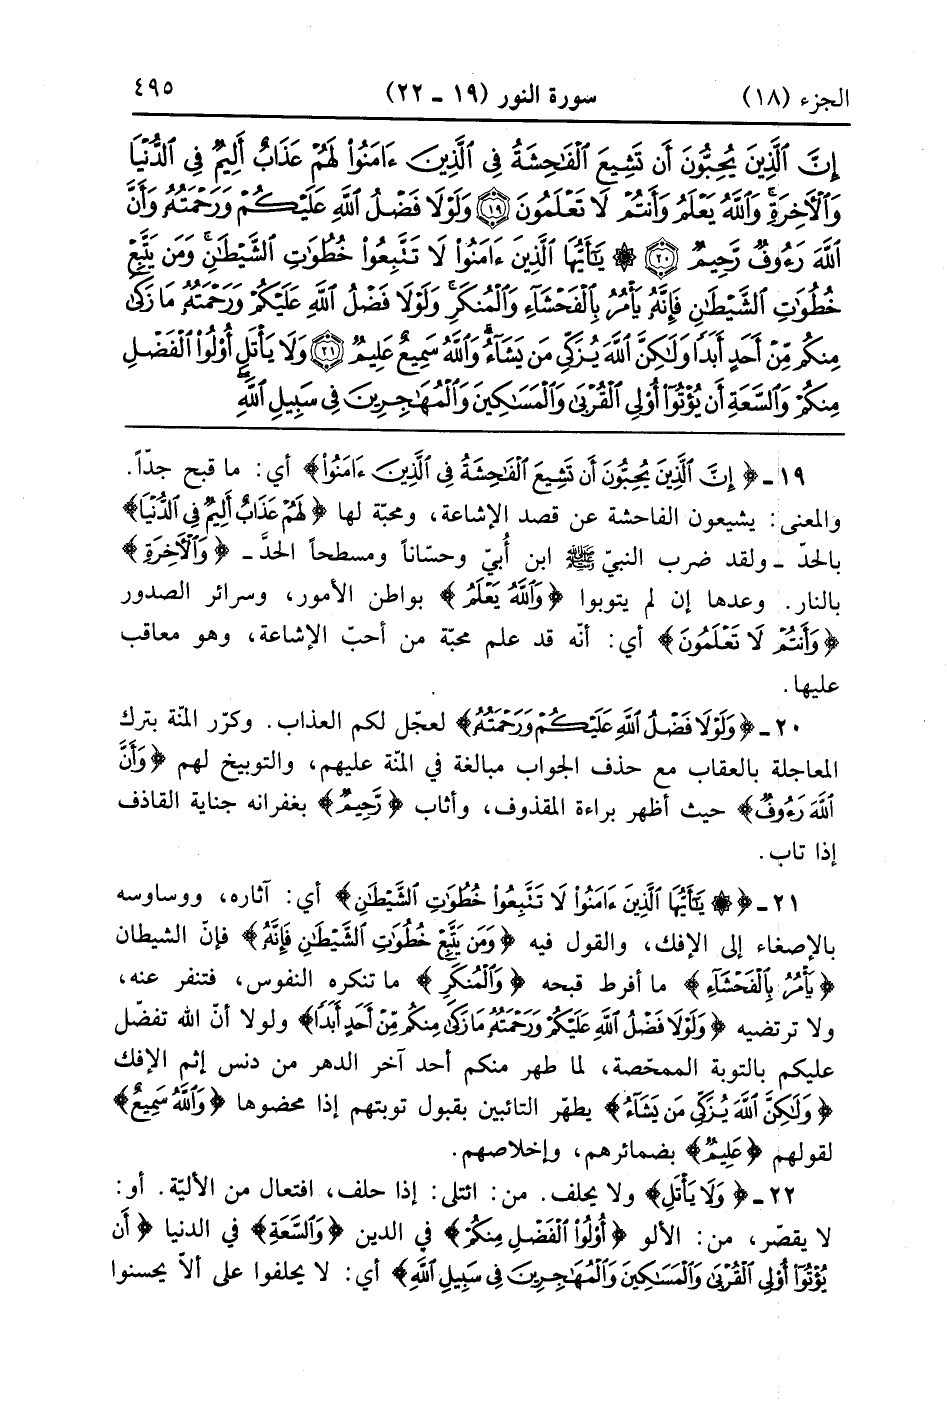 الجزء (١٨) سورة النور (١٩ ـ ٢٢) ٤٩٥
إِنَّ ٱلَّذِينَ يُحِبُّونَ أَن تَشِيعَ ٱلْفَـٰحِشَةُ فِى ٱلَّذِينَ ءَامَنُوا۟ لَهُمْ عَذَابٌ أَلِيمٌ فِى ٱلدُّنْيَا
وَٱلْـَٔاخِرَةِ ۚ وَٱللَّهُ يَعْلَمُ وَأَنتُمْ لَا تَعْلَمُونَ ﴿١٩﴾ وَلَوْلَا فَضْلُ ٱللَّهِ عَلَيْكُمْ وَرَحْمَتُهُۥ وَأَنَّ
ٱللَّهَ رَءُوفٌ رَّحِيمٌ ﴿٢٠﴾ ۞ يَـٰٓأَيُّهَا ٱلَّذِينَ ءَامَنُوا۟ لَا تَتَّبِعُوا۟ خُطُوَٰتِ ٱلشَّيْطَـٰنِ ۚ وَمَن يَتَّبِعْ
خُطُوَٰتِ ٱلشَّيْطَـٰنِ فَإِنَّهُۥ يَأْمُرُ بِٱلْفَحْشَآءِ وَٱلْمُنكَرِ ۚ وَلَوْلَا فَضْلُ ٱللَّهِ عَلَيْكُمْ وَرَحْمَتُهُۥ مَا زَكَىٰ
مِنكُم مِّنْ أَحَدٍ أَبَدًا وَلَـٰكِنَّ ٱللَّهَ يُزَكِّى مَن يَشَآءُ ۗ وَٱللَّهُ سَمِيعٌ عَلِيمٌ ﴿٢١﴾ وَلَا يَأْتَلِ أُو۟لُوا۟ ٱلْفَضْلِ
مِنكُمْ وَٱلسَّعَةِ أَن يُؤْتُوٓا۟ أُو۟لِى ٱلْقُرْبَىٰ وَٱلْمَسَـٰكِينَ وَٱلْمُهَـٰجِرِينَ فِى سَبِيلِ ٱللَّهِ ۖ
١٩ ـ ﴿إِنَّ ٱلَّذِينَ يُحِبُّونَ أَن تَشِيعَ ٱلْفَـٰحِشَةُ فِى ٱلَّذِينَ ءَامَنُوا۟﴾ أي: ما قبح جدّاً.
والمعنى: يشيعون الفاحشة عن قصد الإشاعة، ومحبّة لها ﴿لَهُمْ عَذَابٌ أَلِيمٌ فِى ٱلدُّنْيَا﴾
بالحدّ ـ ولقد ضرب النبيّ ﷺ ابن أُبيّ وحسّاناً ومسطحاً الحدَّ ـ ﴿وَٱلْـَٔاخِرَةِ﴾
بالنار. وعدها إن لم يتوبوا ﴿وَٱللَّهُ يَعْلَمُ﴾ بواطن الأمور، وسرائر الصدور
﴿وَأَنتُمْ لَا تَعْلَمُونَ﴾ أي: أنّه قد علم محبّة من أحبّ الإشاعة، وهو معاقب
عليها.
٢٠ ـ ﴿وَلَوْلَا فَضْلُ ٱللَّهِ عَلَيْكُمْ وَرَحْمَتُهُۥ﴾ لعجّل لكم العذاب. وكرّر المنّة بترك
المعاجلة بالعقاب مع حذف الجواب مبالغة في المنّة عليهم، والتوبيخ لهم ﴿وَأَنَّ
ٱللَّهَ رَءُوفٌ﴾ حيث أظهر براءة المقذوف، وأثاب ﴿رَّحِيمٌ﴾ بغفرانه جناية القاذف
إذا تاب.
٢١ ـ ﴿۞ يَـٰٓأَيُّهَا ٱلَّذِينَ ءَامَنُوا۟ لَا تَتَّبِعُوا۟ خُطُوَٰتِ ٱلشَّيْطَـٰنِ﴾ أي: آثاره، ووساوسه
بالإصغاء إلى الإفك، والقول فيه ﴿وَمَن يَتَّبِعْ خُطُوَٰتِ ٱلشَّيْطَـٰنِ فَإِنَّهُۥ﴾ فإنّ الشيطان
﴿يَأْمُرُ بِٱلْفَحْشَآءِ﴾ ما أفرط قبحه ﴿وَٱلْمُنكَرِ﴾ ما تنكره النفوس، فتنفر عنه،
ولا ترتضيه ﴿وَلَوْلَا فَضْلُ ٱللَّهِ عَلَيْكُمْ وَرَحْمَتُهُۥ مَا زَكَىٰ مِنكُم مِّنْ أَحَدٍ أَبَدًا﴾ ولولا أنّ الله تفضّل
عليكم بالتوبة الممحّصة، لما طهر منكم أحد آخر الدهر من دنس إثم الإفك
﴿وَلَـٰكِنَّ ٱللَّهَ يُزَكِّى مَن يَشَآءُ﴾ يطهّر التائبين بقبول توبتهم إذا محضوها ﴿وَٱللَّهُ سَمِيعٌ﴾
لقولهم ﴿عَلِيمٌ﴾ بضمائرهم، وإخلاصهم.
٢٢ ـ ﴿وَلَا يَأْتَلِ﴾ ولا يحلف. من: ائتلى: إذا حلف، افتعال من الأليّة. أو:
لا يقصّر، من: الألو ﴿أُو۟لُوا۟ ٱلْفَضْلِ مِنكُمْ﴾ في الدين ﴿وَٱلسَّعَةِ﴾ في الدنيا ﴿أَن
يُؤْتُوٓا۟ أُو۟لِى ٱلْقُرْبَىٰ وَٱلْمَسَـٰكِينَ وَٱلْمُهَـٰجِرِينَ فِى سَبِيلِ ٱللَّهِ﴾ أي: لا يحلفوا على ألاّ يحسنوا